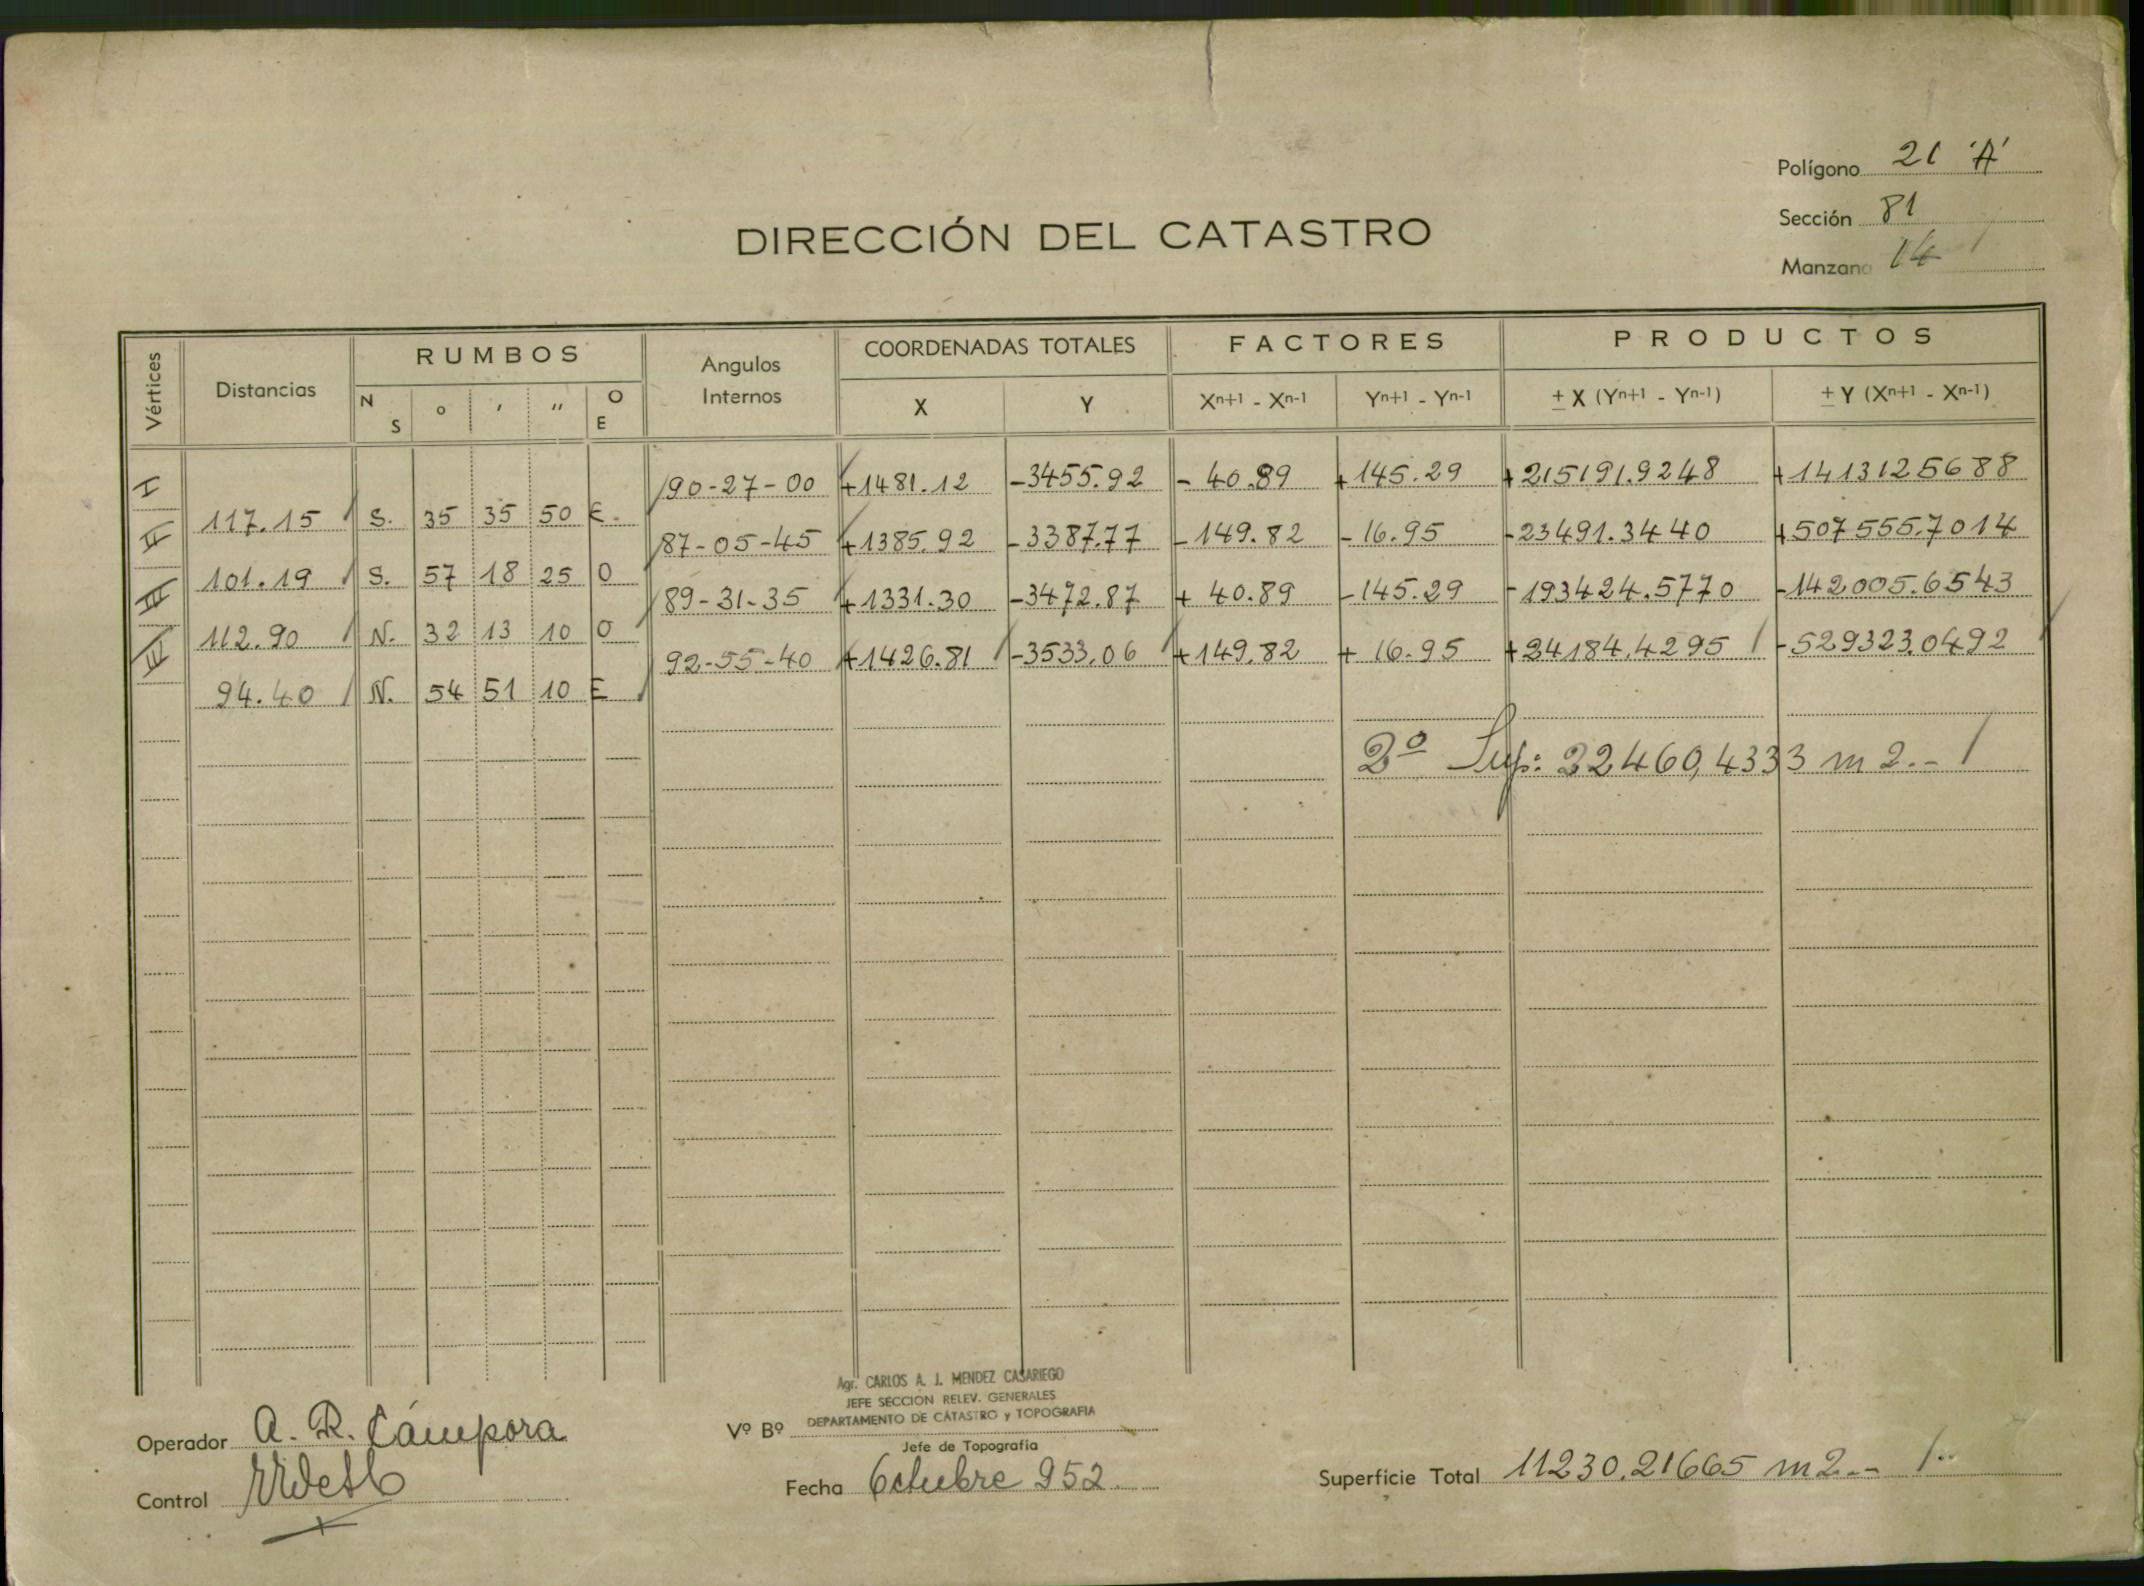 Polígono 21 'A'
Sección 81
Manzana 14
DIRECCIÓN DEL CATASTRO
Vértices Distancias RUMBOS Angulos Internos COORDENADAS TOTALES FACTORES PRODUCTOS
N S o ' '' O E X Y Xn+1 - Xn-1 Yn+1 - Yn-1 ± X (Yn+1 - Yn-1) ± Y (Xn+1 - Xn-1)
I 90-27-00 +1481.12 -3455.92 - 40.89 +145.29 +215191.9248 +1413125688
117.15 S. 35 35 50 E.
II 87-05-45 +1385.92 -3387.77 -149.82 - 16.95 -23491.3440 +507555.7014
101.19 S. 57 18 25 O
III 89-31-35 +1331.30 -3472.87 + 40.89 -145.29 -193424.5770 -142005.6543
112.90 N. 32 13 10 O
IV 92-55-40 +1426.81 -3533,06 +149,82 + 16.95 +24184,4295 -529323,0492
94.40 N. 54 51 10 E
2º Sup: 22460,4333 m2.-
Agr. CARLOS A. J. MENDEZ CASARIEGO
JEFE SECCION RELEV. GENERALES
DEPARTAMENTO DE CATASTRO y TOPOGRAFIA
Operador A. R. Cámpora
Vº Bº
Jefe de Topografía
Control
Fecha Octubre 952
Superficie Total 11230.21665 m2.-